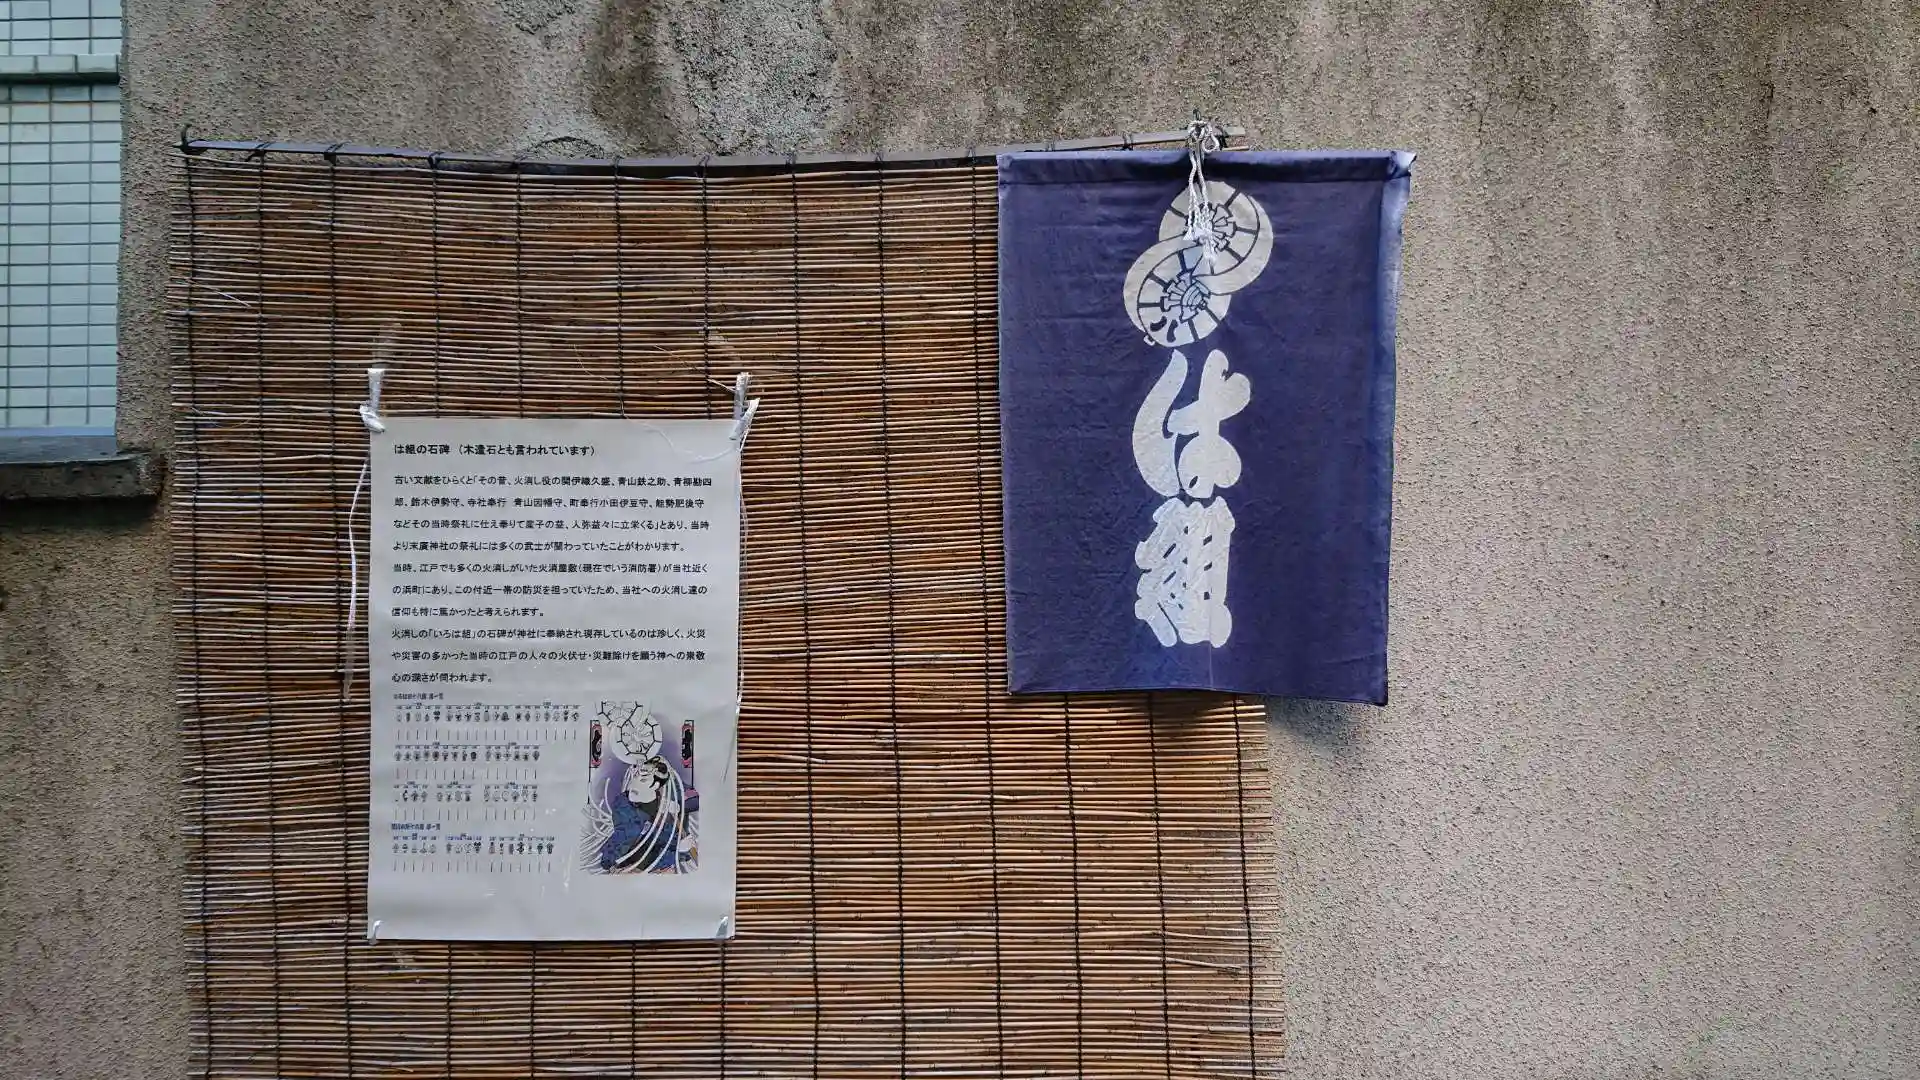 は組の石碑 (木遣石とも言われています)
古い文献をひらくと「その昔、火消し役の関伊織久盛、青山鉄之助、青柳勘四
郎、鈴木伊勢守、寺社奉行 青山因幡守、町奉行小田伊豆守、能勢肥後守
などその当時祭礼に仕え奉りて産子の益、人弥益々に立栄くる」とあり、当時
より末廣神社の祭礼には多くの武士が関わっていたことがわかります。
当時、江戸でも多くの火消しがいた火消屋敷(現在でいう消防署)が当社近く
の浜町にあり、この付近一帯の防災を担っていたため、当社への火消し達の
信仰も特に篤かったと考えられます。
火消しの「いろは組」の石碑が神社に奉納され現存しているのは珍しく、火災
や災害の多かった当時の江戸の人々の火伏せ・災難除けを願う神への崇敬
心の深さが伺われます。
は組